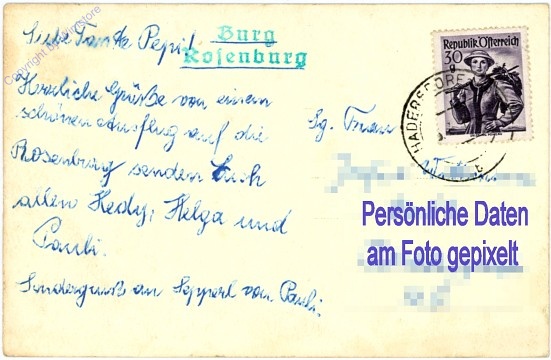 Liebe Tante Pepi!
Burg
Rosenburg
Herzliche Grüße von einem
schönen Ausflug auf die
Rosenburg senden Euch
allen Hedy, Helga und
Pauli.
Sondergruß an Schperl von Pauli.
Republik Österreich
30 g
HADERSDORF
Sg. Frau
Persönliche Daten
am Foto gepixelt
Copyright by